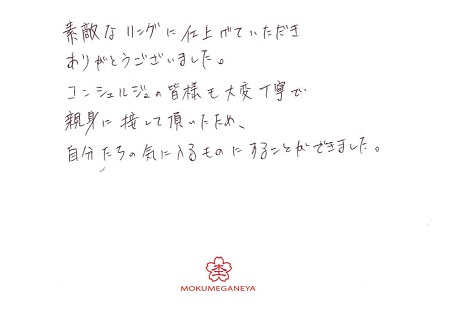 素敵なリングに仕上げていただき
ありがとうございました。
コンシェルジュの皆様も大変丁寧で
親身に接して頂いたため、
自分たちの気に入るものにすることができました。
MOKUMEGANEYA